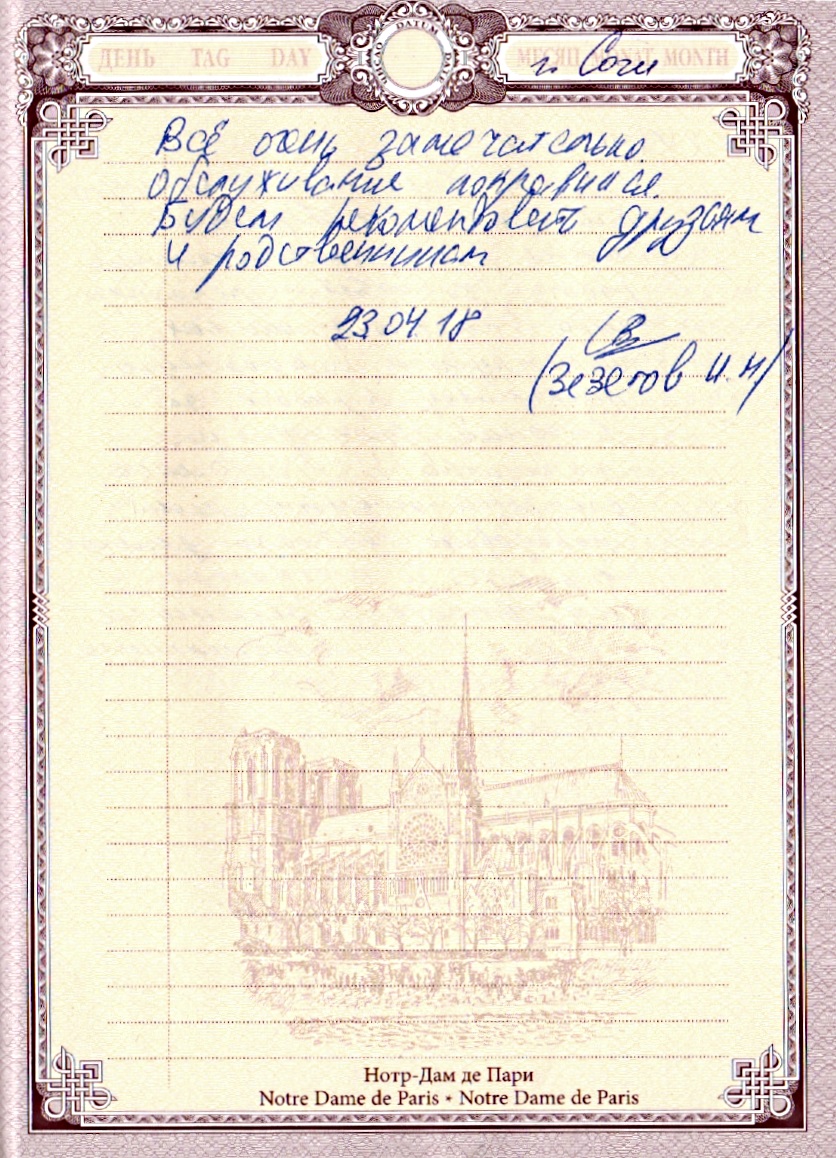 ДЕНЬ TAG DAY DATUM DATE МЕСЯЦ MONAT MONTH
г. Сочи
Всё очень замечательно
обслуживание понравился.
Будем рекомендовать друзьям
и родственникам
23.04.18
(Зезегов И.Н)
Нотр-Дам де Пари
Notre Dame de Paris • Notre Dame de Paris